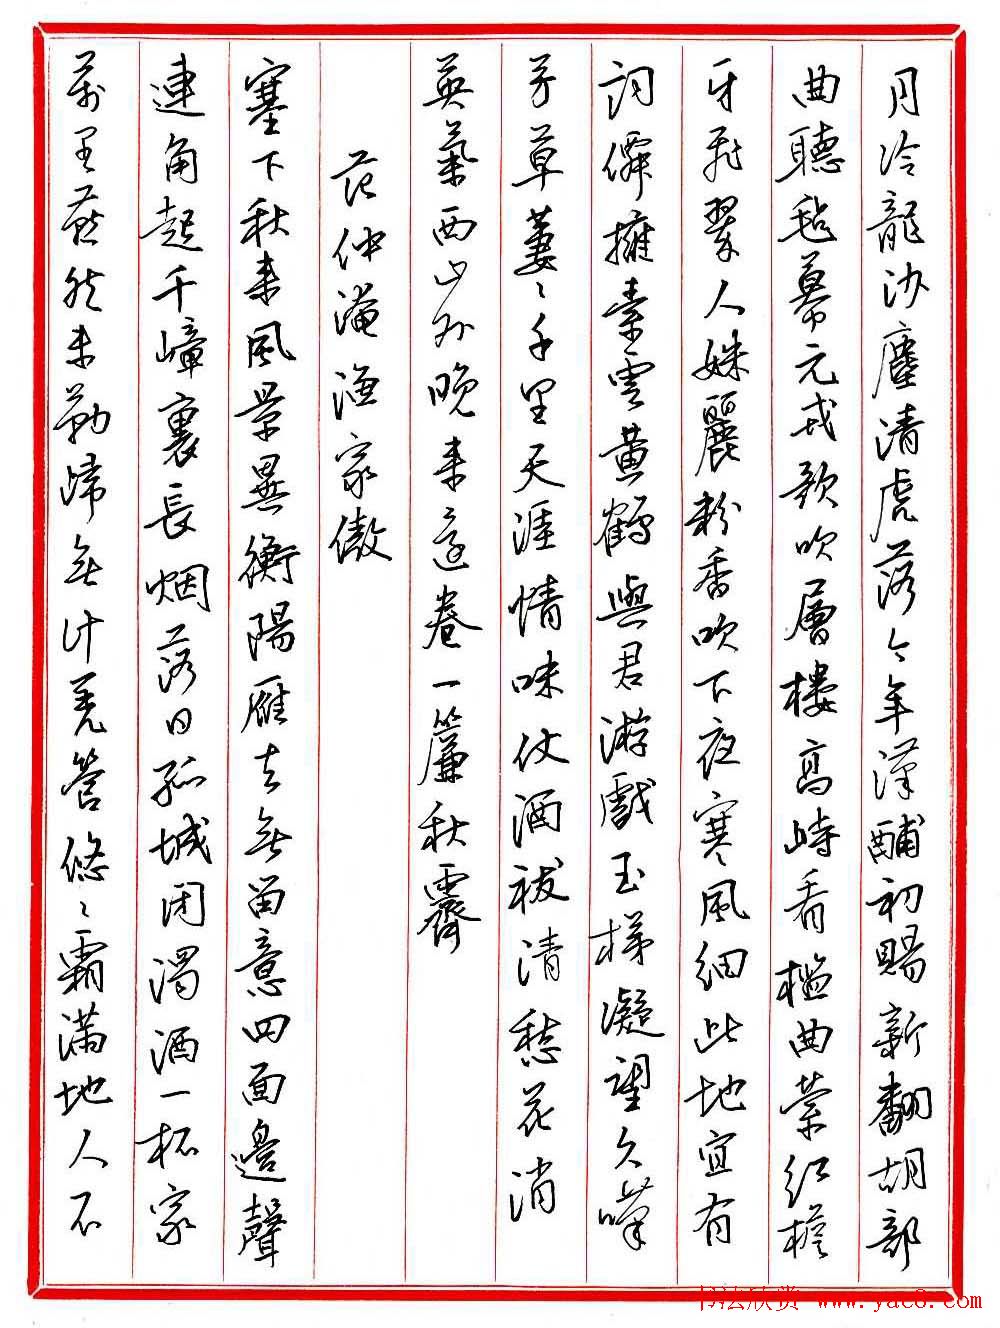 月冷龍沙塵清虎落今年漢酺初賜新翻胡部
曲聽氈幕元戎歌吹層樓高峙看檻曲縈紅檐
牙飛翠人姝麗粉香吹下夜寒風細此地宜有
詞僊擁素雲黃鶴與君游戲玉梯凝望久嘆
芳草萋〻千里天涯情味仗酒祓清愁花消
英氣西山外晚來還卷一簾秋霽
范仲淹漁家傲
塞下秋來風景異衡陽雁去無留意四面邊聲
連角起千嶂裏長烟落日孤城閉濁酒一杯家
萬里燕然未勒歸無計羌管悠〻霜滿地人不
书法欣赏 www.yac8.com